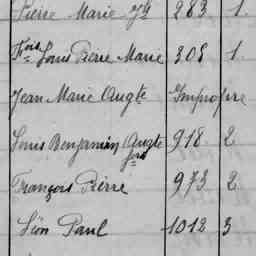 Pierre Marie Jh 283 1.
Fois Louis Pierre Marie 308 1
Jean Marie Augte Impropre
Louis Benjamin Augte 918 2
François Pierre 973 2
Léon Paul 1012 3